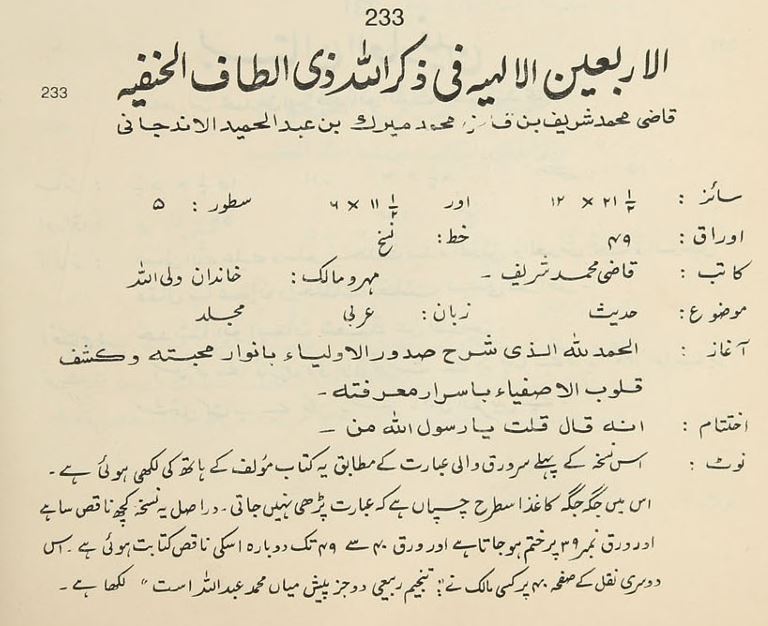 233
الاربعین الالہیہ فی ذکر اللہ ذی الطاف الخنفیہ
233
قاضی محمد شریف بن محمد میرک بن عبدالحمید الاندجانی
سائز : ۲۱ ۱/۲ × ۱۲ اور ۱۱ ۱/۲ × ۶ سطور : ۵
اوراق : ۴۹ خط : نسخ
کاتب : قاضی محمد شریف ۔ مہر و مالک : خاندان ولی اللہ
موضوع : حدیث زبان : عربی مجلد
آغاز : الحمد للہ الذی شرح صدور الاولیاء بانوار محبتہ وکشف
قلوب الاصفیاء باسرار معرفتہ ۔
اختتام : انہ قال قلت یا رسول اللہ من ۔
نوٹ : اس نسخہ کے پہلے سرورق والی عبارت کے مطابق یہ کتاب مؤلف کے ہاتھ کی لکھی ہوئی ہے ۔
اس میں جگہ جگہ کاغذ اسطرح چسپاں ہے کہ عبارت پڑھی نہیں جاتی ۔ دراصل یہ نسخہ کچھ ناقص سا ہے
اور ورق نمبر ۳۹ پر ختم ہو جاتا ہے اور ورق ۴۰ سے ۴۹ تک دوبارہ اسکی ناقص کتابت ہوئی ہے ۔ اس
دوسری نقل کے صفحہ ۴۰ پر کسی مالک نے : "تنجیم ربیعی دو جز پیش میاں محمد عبداللہ است" لکھا ہے ۔